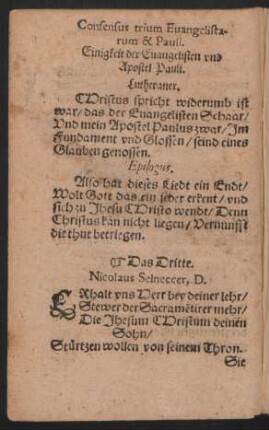 Consensus trium Euangelista-
rum & Pauli.
Einigkeit der Euangelisten vnd
Apostel Pauli.
Lutheraner.
CHristus spricht widerumb ist
war/ das der Euangelisten Schaar/
Vnd mein Apostel Paulus zwar/ Im
Fundament vnd Glossen/ seind eines
Glauben genossen.
Epilogus.
Also hat dieses Liedt ein Endt/
Wolt Gott das ein jeder erkent/ vnd
sich zu Jhesu CHristo wendt/ Denn
Christus kan nicht liegen/ Vernunfft
die thut betriegen.
Das Dritte.
Nicolaus Selneccer, D.
ERhalt vns Herr bey deiner lehr/
Stewer der Sacramētirer mehr/
Die Jhesum CHristum deinen
Sohn/
Stürtzen wollen von seinem Thron.
Sie